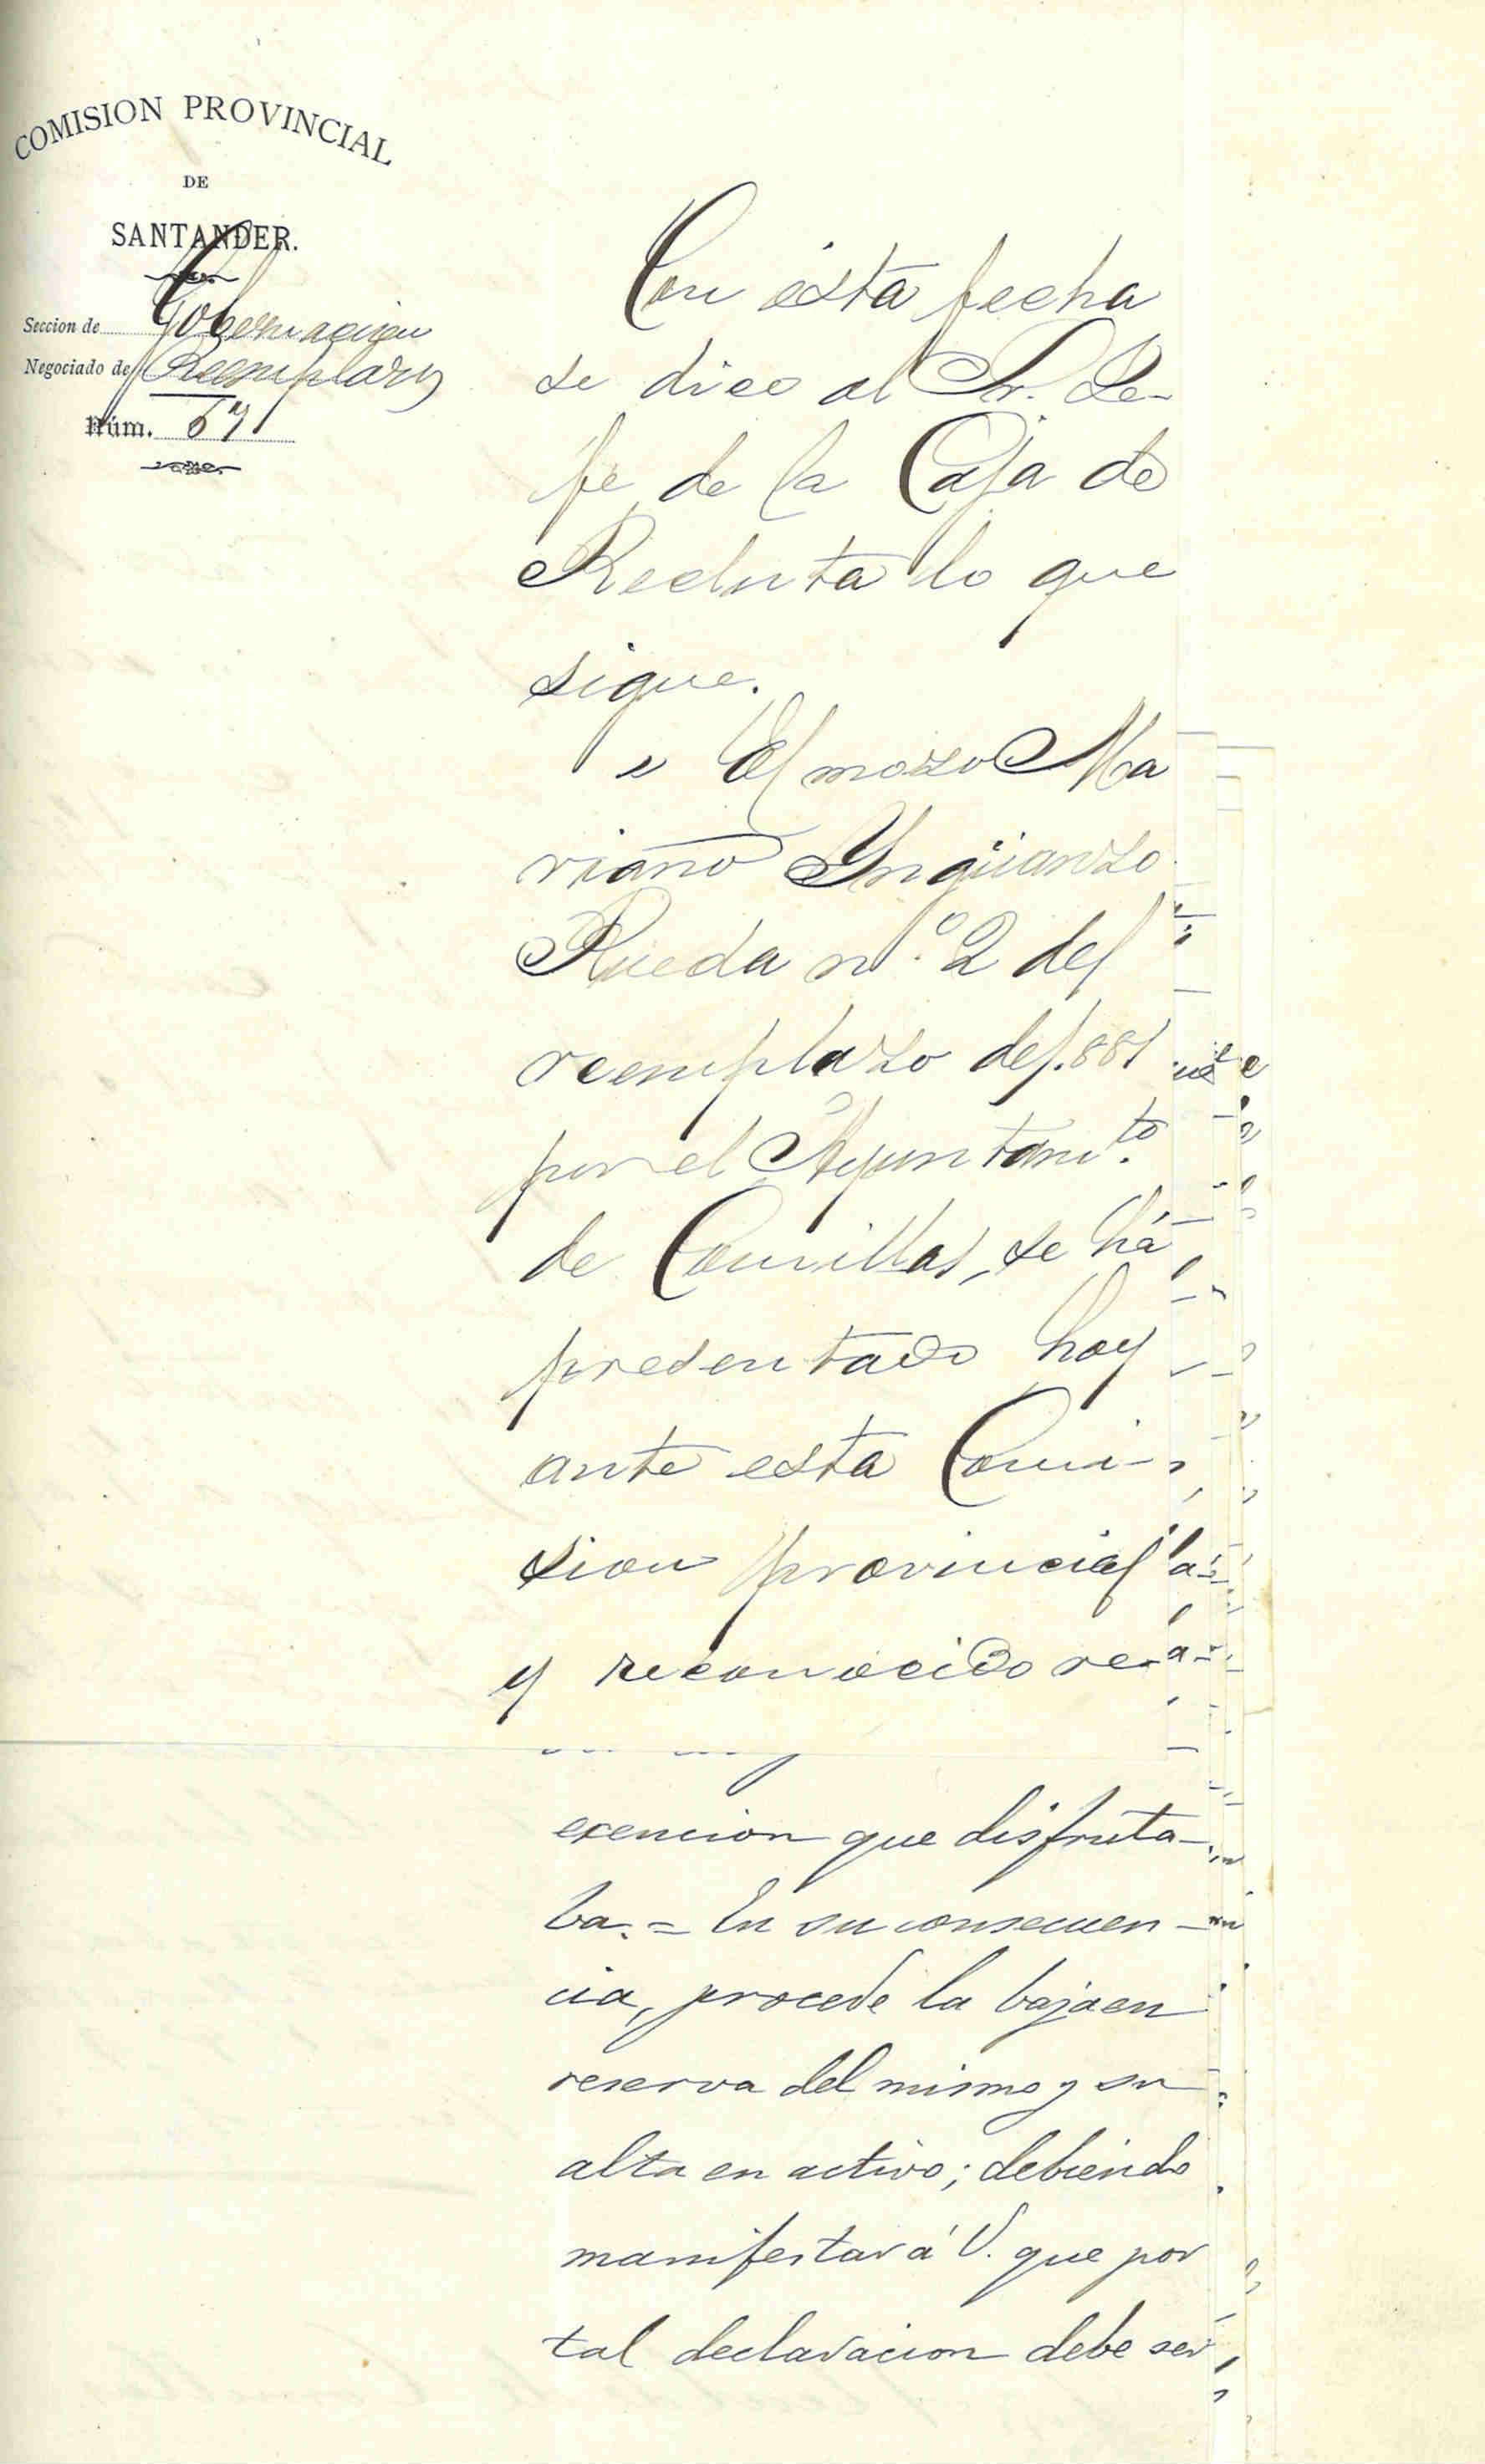 COMISION PROVINCIAL
DE
SANTANDER.
Seccion de Gobernacion
Negociado de Reemplazos
Núm. 67
Con ésta fecha
se dice al Sr. Je-
fe de la Caja de
Recluta lo que
sigue.
" El mozo Ma
riano Ynguanzo
Rueda n.º 2 del
reemplazo del.881
por el Ayuntamto.
de Comillas, se há
presentado hoy
ante esta Comi-
sion provincial
y reconocido re-
exencion que disfruta-
ba. = En su consecuen-
cia, procede la baja en
reserva del mismo y su
alta en activo; debiendo
manifestar á V. que por
tal declaracion debe ser